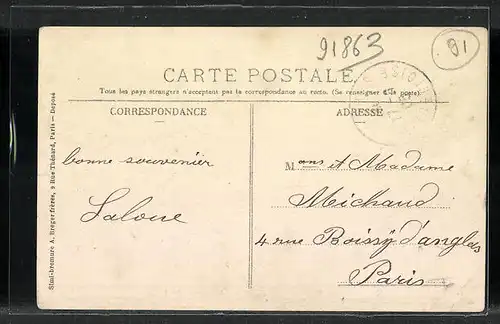 91863
91
CARTE POSTALE
Tous les pays étrangers n'acceptent pas la correspondance au recto. (Se renseigner à la poste).
CORRESPONDANCE
ADRESSE
bonne souvenier
Mans et Madame
Michaud
4 rue Boissy d'anglas
Paris
Simi-bromure A. Breger frères, 9 Rue Thénard, Paris — Déposé